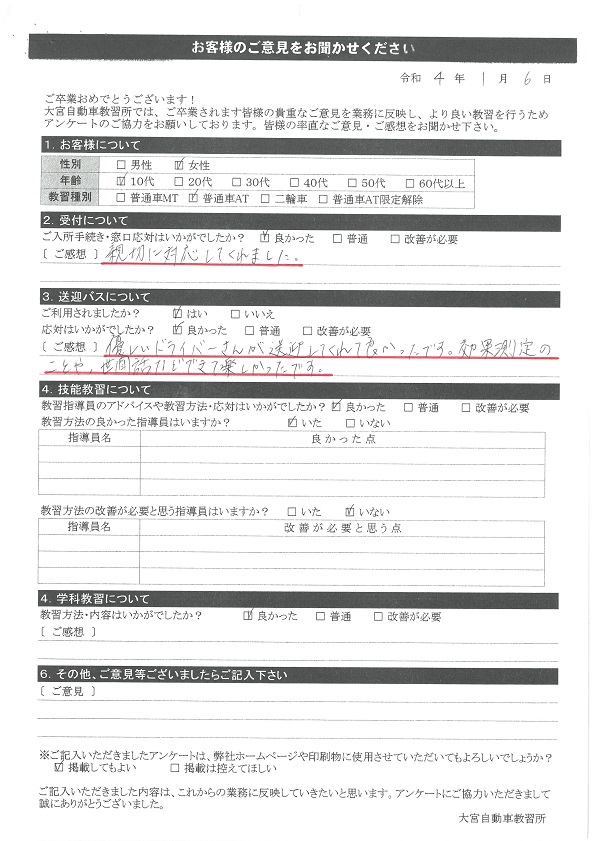 お客様のご意見をお聞かせください
令和 4 年 1 月 6 日
ご卒業おめでとうございます！
大宮自動車教習所では、ご卒業されます皆様の貴重なご意見を業務に反映し、より良い教習を行うため
アンケートのご協力をお願いしております。皆様の率直なご意見・ご感想をお聞かせ下さい。
1. お客様について
性別 □ 男性 ☑ 女性
年齢 ☑ 10代 □ 20代 □ 30代 □ 40代 □ 50代 □ 60代以上
教習種別 □ 普通車MT ☑ 普通車AT □ 二輪車 □ 普通車AT限定解除
2. 受付について
ご入所手続き・窓口応対はいかがでしたか？ ☑ 良かった □ 普通 □ 改善が必要
［ ご感想 ］ 親切に対応してくれました。
3. 送迎バスについて
ご利用されましたか？ ☑ はい □ いいえ
応対はいかがでしたか？ ☑ 良かった □ 普通 □ 改善が必要
［ ご感想 ］ 優しいドライバーさんが送迎してくれて良かったです。効果測定の
ことや、世間話などできて楽しかったです。
4. 技能教習について
教習指導員のアドバイスや教習方法・応対はいかがでしたか？ ☑ 良かった □ 普通 □ 改善が必要
教習方法の良かった指導員はいますか？ ☑ いた □ いない
指導員名 良かった点
教習方法の改善が必要と思う指導員はいますか？ □ いた ☑ いない
指導員名 改善が必要と思う点
4. 学科教習について
教習方法・内容はいかがでしたか？ ☑ 良かった □ 普通 □ 改善が必要
［ ご感想 ］
6. その他、ご意見等ございましたらご記入下さい
［ ご意見 ］
※ご記入いただきましたアンケートは、弊社ホームページや印刷物に使用させていただいてもよろしいでしょうか？
☑ 掲載してもよい □ 掲載は控えてほしい
ご記入いただきました内容は、これからの業務に反映していきたいと思います。アンケートにご協力いただきまして
誠にありがとうございました。
大宮自動車教習所